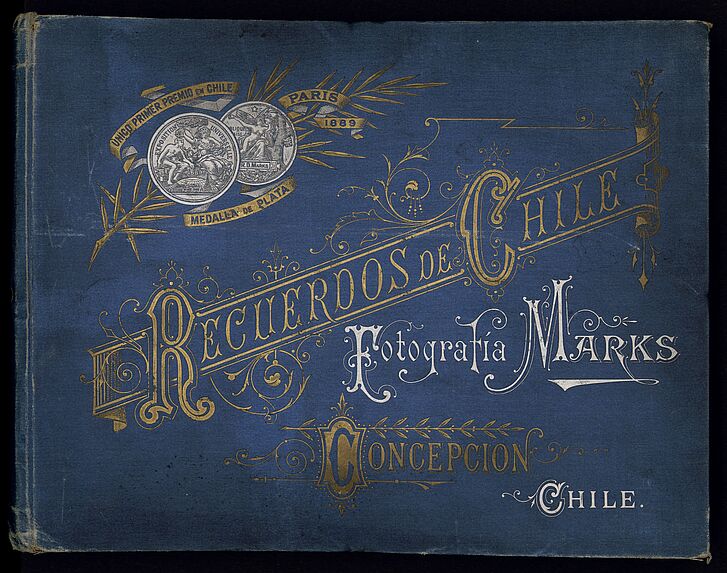 UNICO PRIMER PREMIO EN CHILE
PARIS
1889
EXPOSITION UNIVERSELLE
MEDALLA DE PLATA
RECUERDOS DE CHILE
Fotografía MARKS
CONCEPCION
CHILE.